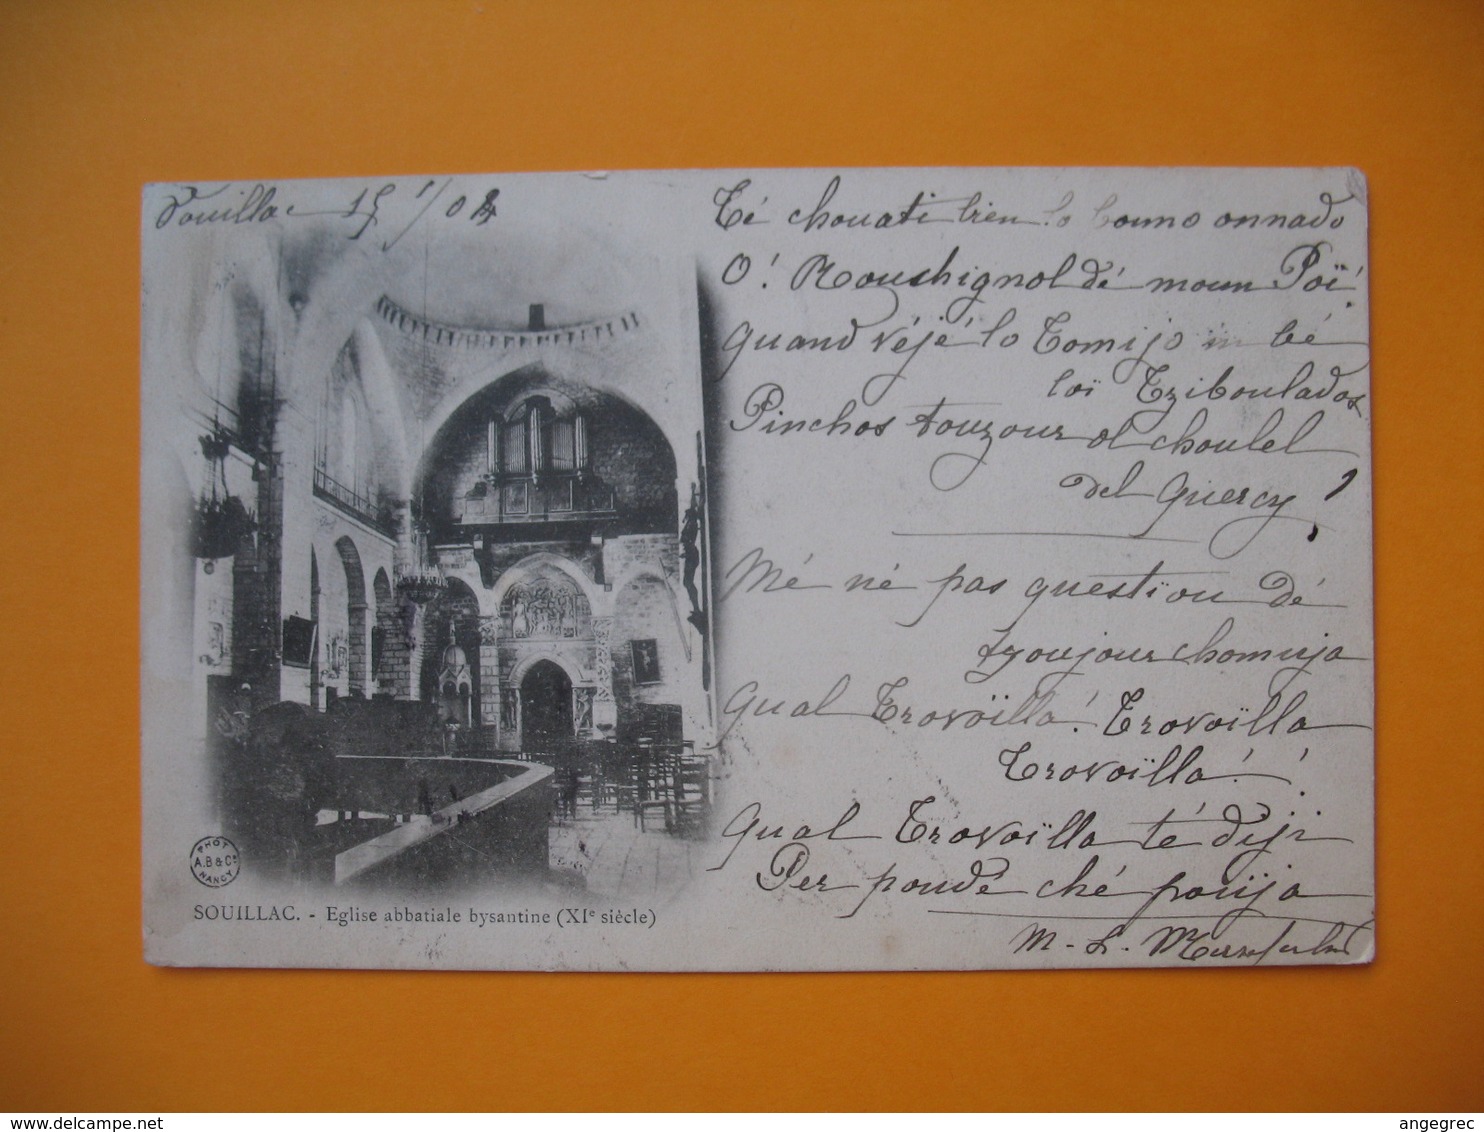 Souillac 15 1/04
Té chouati bien lo bouno onnado
O! Rouchignol dé moun Poï!
Quand véjé lo Tomijo in bé
loï Tziboulados
Pinchos touzour ol choulel
del Quercy !
Mé né pas questïou dé
tzoujour chomija
Qual Trovoïlla! Trovoïlla
Trovoïlla! !
Qual Trovoïlla té diji
Per poudé ché pouïja
M. L.
PHOT
A.B & Cᵉ
NANCY
SOUILLAC. - Eglise abbatiale bysantine (XIᵉ siècle)
www.delcampe.net
angegrec